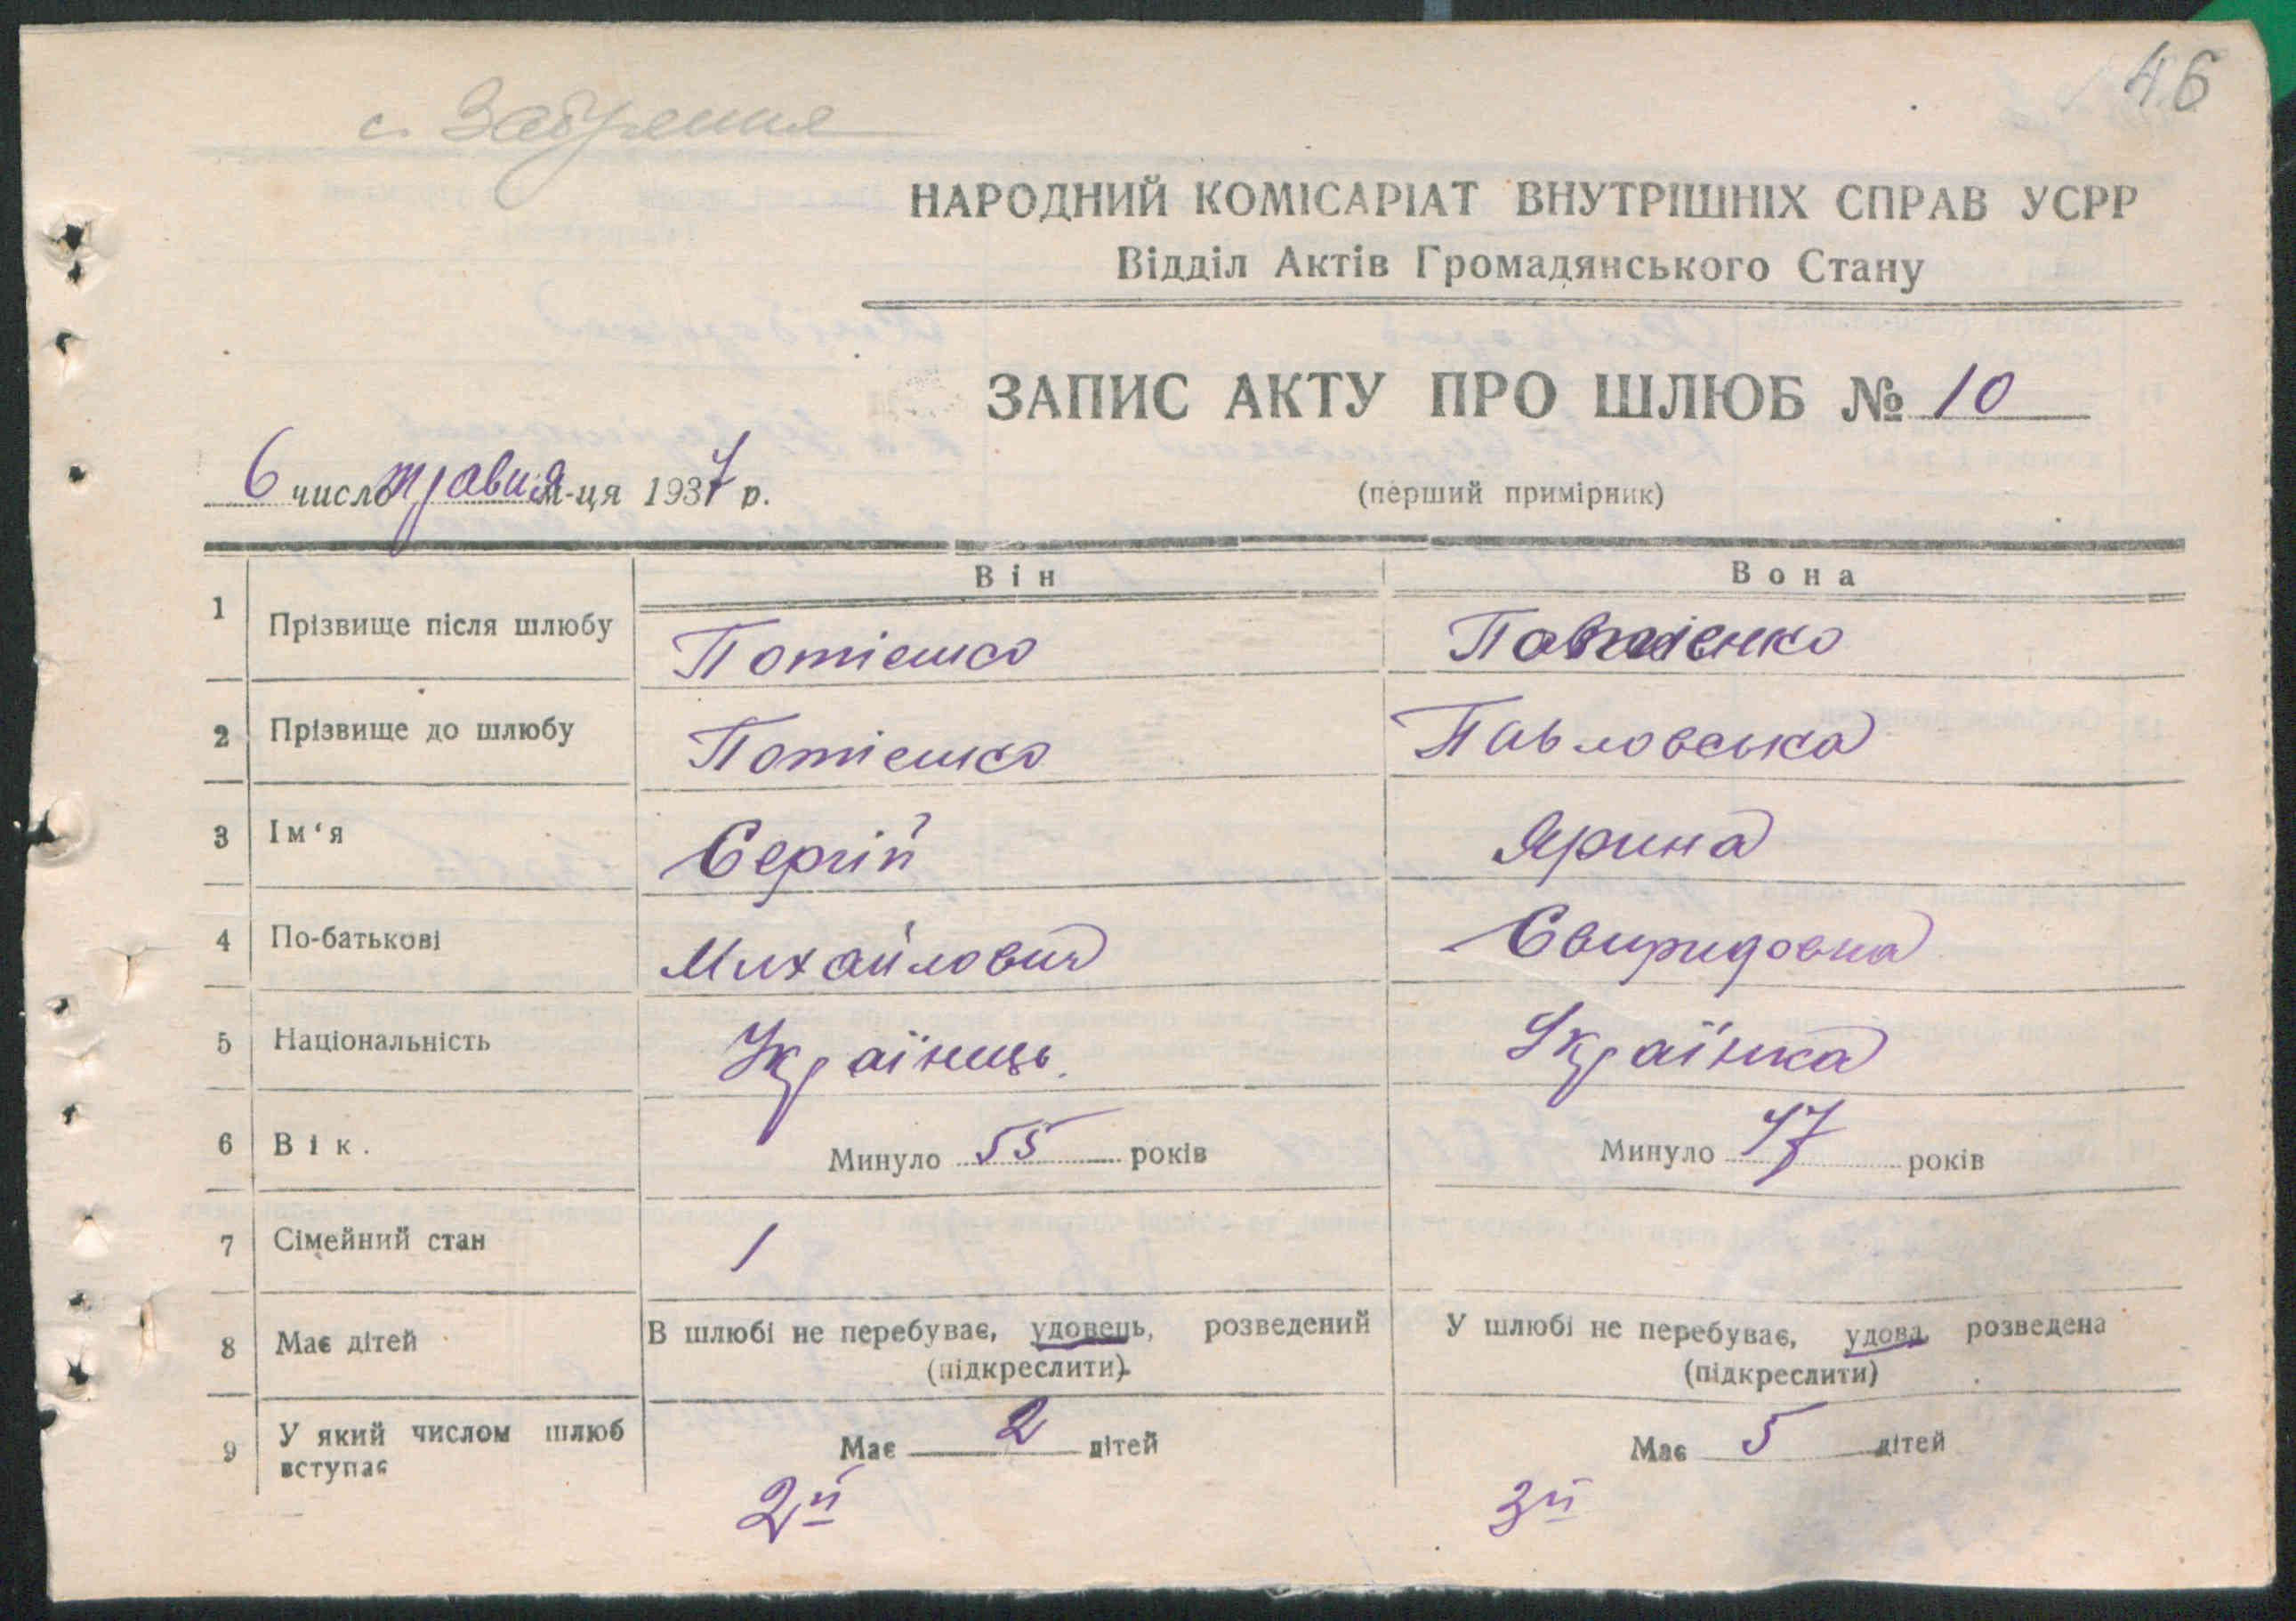 46
с. Забуяння
НАРОДНИЙ КОМІСАРІАТ ВНУТРІШНІХ СПРАВ УСРР
Відділ Актів Громадянського Стану
ЗАПИС АКТУ ПРО ШЛЮБ № 10
6 число травня м-ця 1937 р.
(перший примірник)
Він Вона
1 Прізвище після шлюбу Потієнко
2 Прізвище до шлюбу Потієнко Павловська
3 Ім‘я Сергій Ярина
4 По-батькові Михайлович Свиридовна
5 Національність Українець. Українка
6 Вік. Минуло 55 років Минуло 47 років
7 Сімейний стан 1
8 Має дітей В шлюбі не перебуває, удовець, розведений У шлюбі не перебуває, удова, розведена
(підкреслити) (підкреслити)
9 У який числом шлюб вступає Має 2 дітей Має 5 дітей
2й 3й